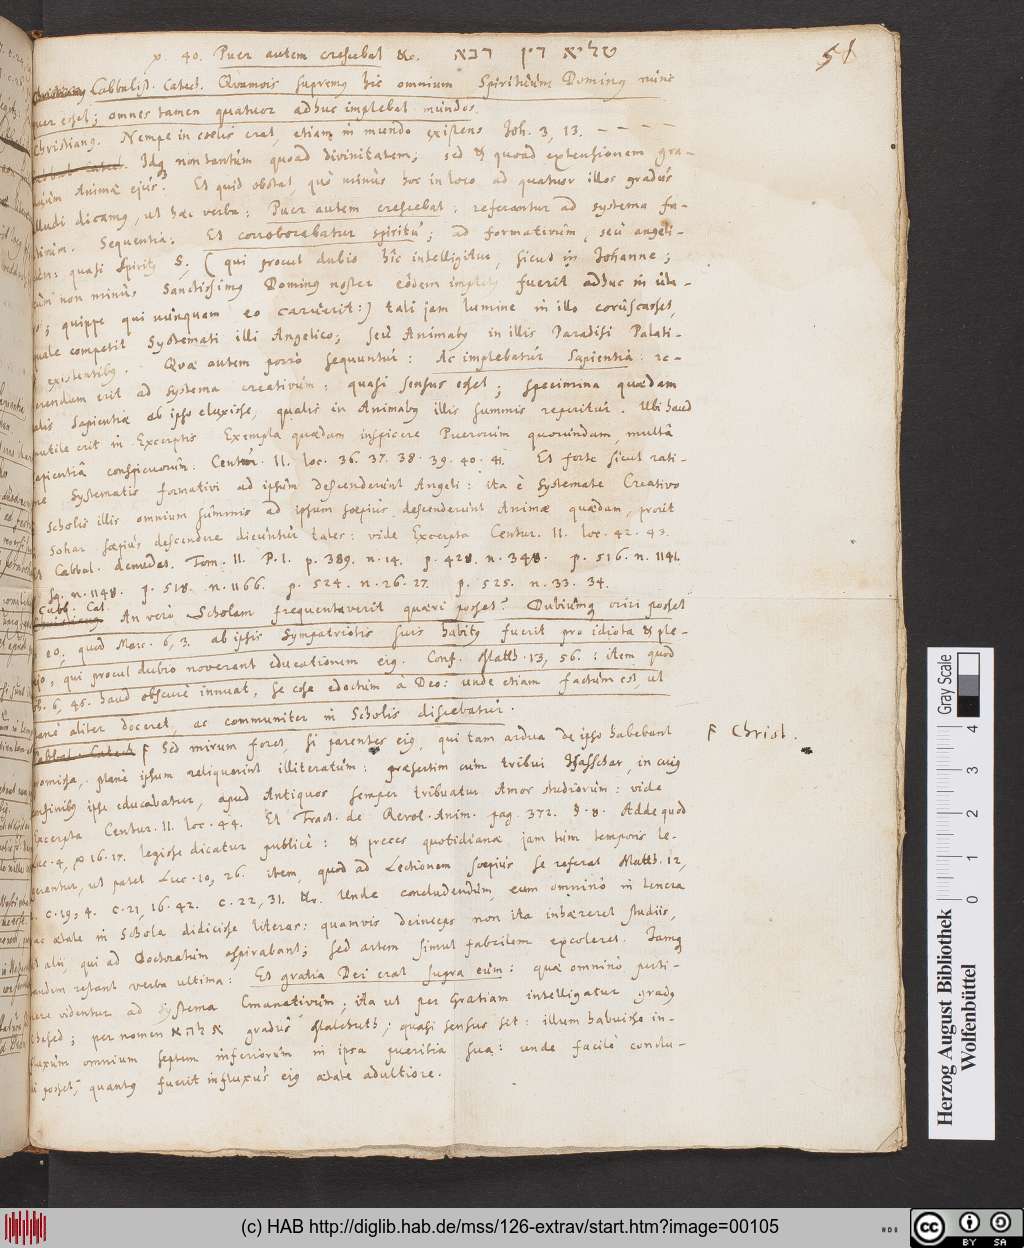 51
v. 40. Puer autem crescebat &c. שליא דין רבא
Cabbalist. Catech. Quamvis supremus hic omnium Spirituum Dominus nunc
puer esset; omnes tamen quatuor adhuc implebat mundos.
Christianus. Nempe in coelis erat, etiam in mundo existens Joh. 3, 13. - - - -
Idq non tantum quoad divinitatem; sed & quoad extensionem gra-
Animae ejus. Et quid obstat, quo minus hoc in loco ad quatuor illos gradus
alludi dicamus, ut haec verba: Puer autem crescebat: referantur ad systema fa-
ctivum. Sequentia: Et corroborabatur spiritu; ad formativum, seu angeli-
cum: quasi Spiritus S. (qui procul dubio hic intelligitur, sicut in Johanne;
cum non minus Sanctissimus Dominus noster eodem impletus fuerit adhuc in ute-
ro; quippe qui nunquam eo caruerit:) tali jam lumine in illo coruscasset,
quale competit Systemati illi Angelico; seu Animabus in illis Paradisi Palati-
is existentibus. Quae autem porro sequuntur: Ac implebatur sapientia: re-
ferendum erit ad systema creativum: quasi sensus esset; specimina quaedam
talis Sapientiae ab ipso eluxisse, qualis in Animabus illis summis reperitur. Ubi haud
inutile erit in Excerptis Exempla quaedam inspicere Puerorum quorundam, multa
sapientia conspicuorum: Centur. II. loc. 36. 37. 38. 39. 40. 41. Et forte sicut rati-
one Systematis formativi ad ipsum descenderunt Angeli: ita e Systemate Creativo
Scholis illis omnium summis ad ipsum saepius descenderunt Animae quaedam, prout
in Sohar saepius descendere dicuntur tales: vide Excerpta Centur. II. loc. 42. 43.
Et Cabbal. denudat. Tom. II. P. I. p. 389. n. 14. p. 428. n. 348. p. 516. n. 1141.
sq. n. 1148. p. 518. n. 1166. p. 524. n. 26. 27. p. 525. n. 33. 34.
Cabb. Cat. An vero Scholam frequentaverit quaeri posset? Dubiumq oriri posset
ex eo, quod Marc. 6, 3. ab ipsis Sympatriotis suis habitus fuerit pro idiota & ple-
bejo, qui procul dubio noverant educationem ejus. Conf. Matth. 13, 56.: item quod
Joh. 6, 45. haud obscure innuat, se esse edoctum a Deo: unde etiam factum est, ut
plane aliter doceret, ac communiter in Scholis discebatur.
F Sed mirum foret, si parentes ejus, qui tam ardua de ipso habebant
F Christ.
promissa, plane ipsum reliquerint illiteratum: praesertim cum tribui Isaschar, in cujus
confinibus ipse educabatur, apud Antiquos semper tribuatur Amor studiorum: vide
Excerpta Centur. II. loc. 44. Et Tract. de Revol. Anim. pag. 372. §. 8. Adde quod
Luc. 4, v 16. 17. legisse dicatur publice: & preces quotidianae jam tum temporis le-
gerentur, ut patet Luc. 10, 26. item, quod ad Lectionem saepius se referat Matth. 12,
c. 19, 4. c. 21, 16. 42. c. 22, 31. &c. Unde concludendum, eum omnino in tenera
hac aetate in Schola didicisse literas: quamvis deinceps non ita inhaereret studiis,
ut alii, qui ad Doctoratum aspirabant; sed artem simul fabrilem excoleret. Jamq
tandem restant verba ultima: Et gratia Dei erat supra eum: quae omnino perti-
nere videntur ad Systema Emanativum; ita ut per Gratiam intelligatur gradus
Chesed; per nomen אלהא gradus Malchuth; quasi sensus sit: illum habuisse in-
fluxum omnium septem inferiorum in ipsa pueritia sua: unde facile conclu-
di posset, quantus fuerit influxus ejus aetate adultiore.
Gray Scale
0 1 2 3 4
Herzog August Bibliothek
Wolfenbüttel
(c) HAB http://diglib.hab.de/mss/126-extrav/start.htm?image=00105
HAB
cc BY SA